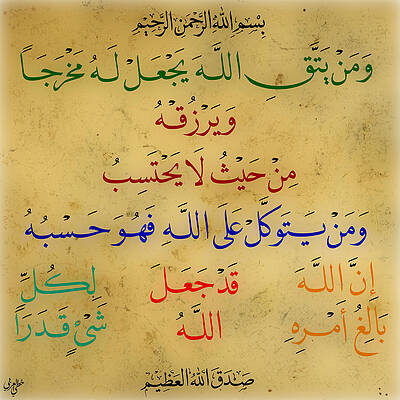 بِسْمِ اللهِ الرَّحْمٰنِ الرَّحِيْمِ
وَمَنْ يَتَّقِ اللَّهَ يَجْعَلْ لَهُ مَخْرَجَاً
وَيَرْزُقْهُ
مِنْ حَيْثُ لَا يَحْتَسِبُ
وَمَنْ يَتَوَكَّلْ عَلَى اللَّهِ فَهُوَ حَسْبُهُ
إِنَّ اللَّهَ قَدْ جَعَلَ لِكُلِّ
بَالِغُ أَمْرِهِ اللَّهُ شَيْءٍ قَدَرَاً
صَدَقَ اللهُ العَظِيْمُ